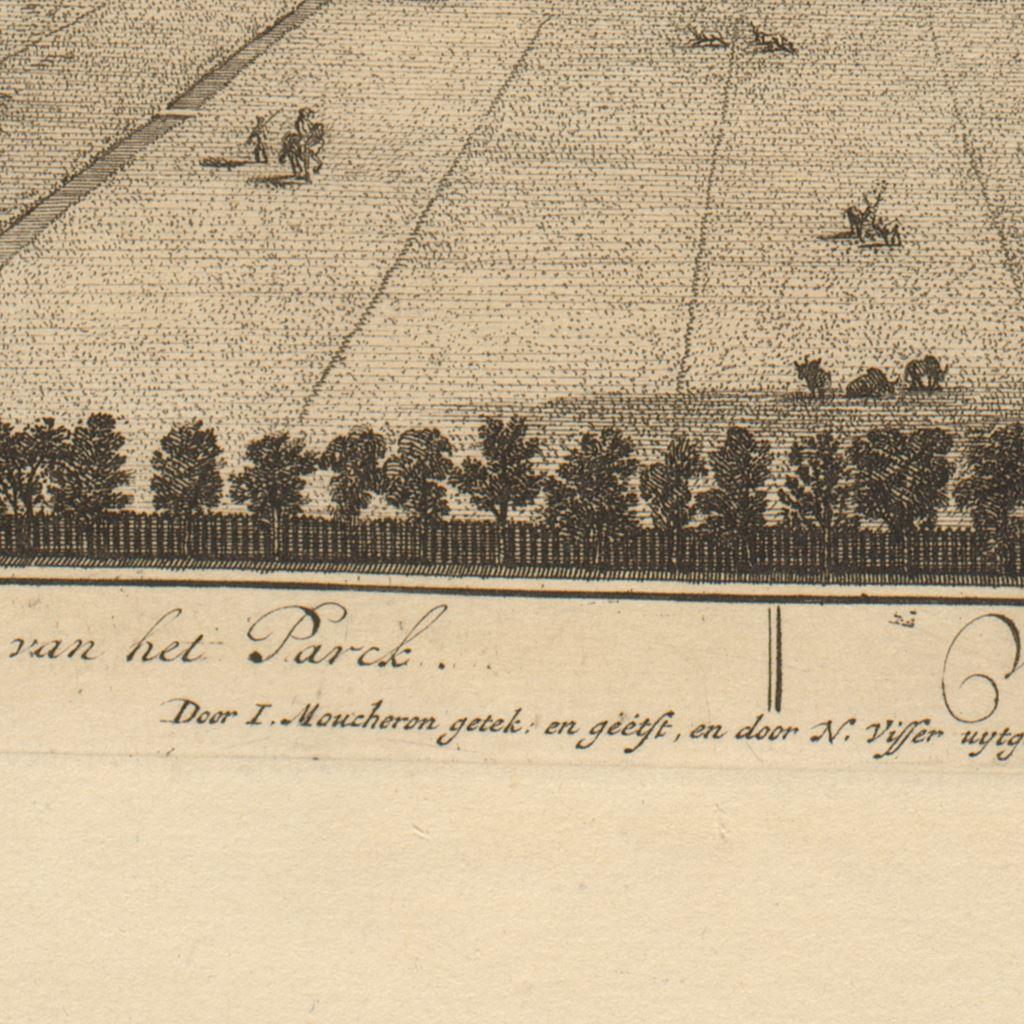 van het Parck.
Door I. Moucheron getek: en geëtst, en door N. Visser uytg